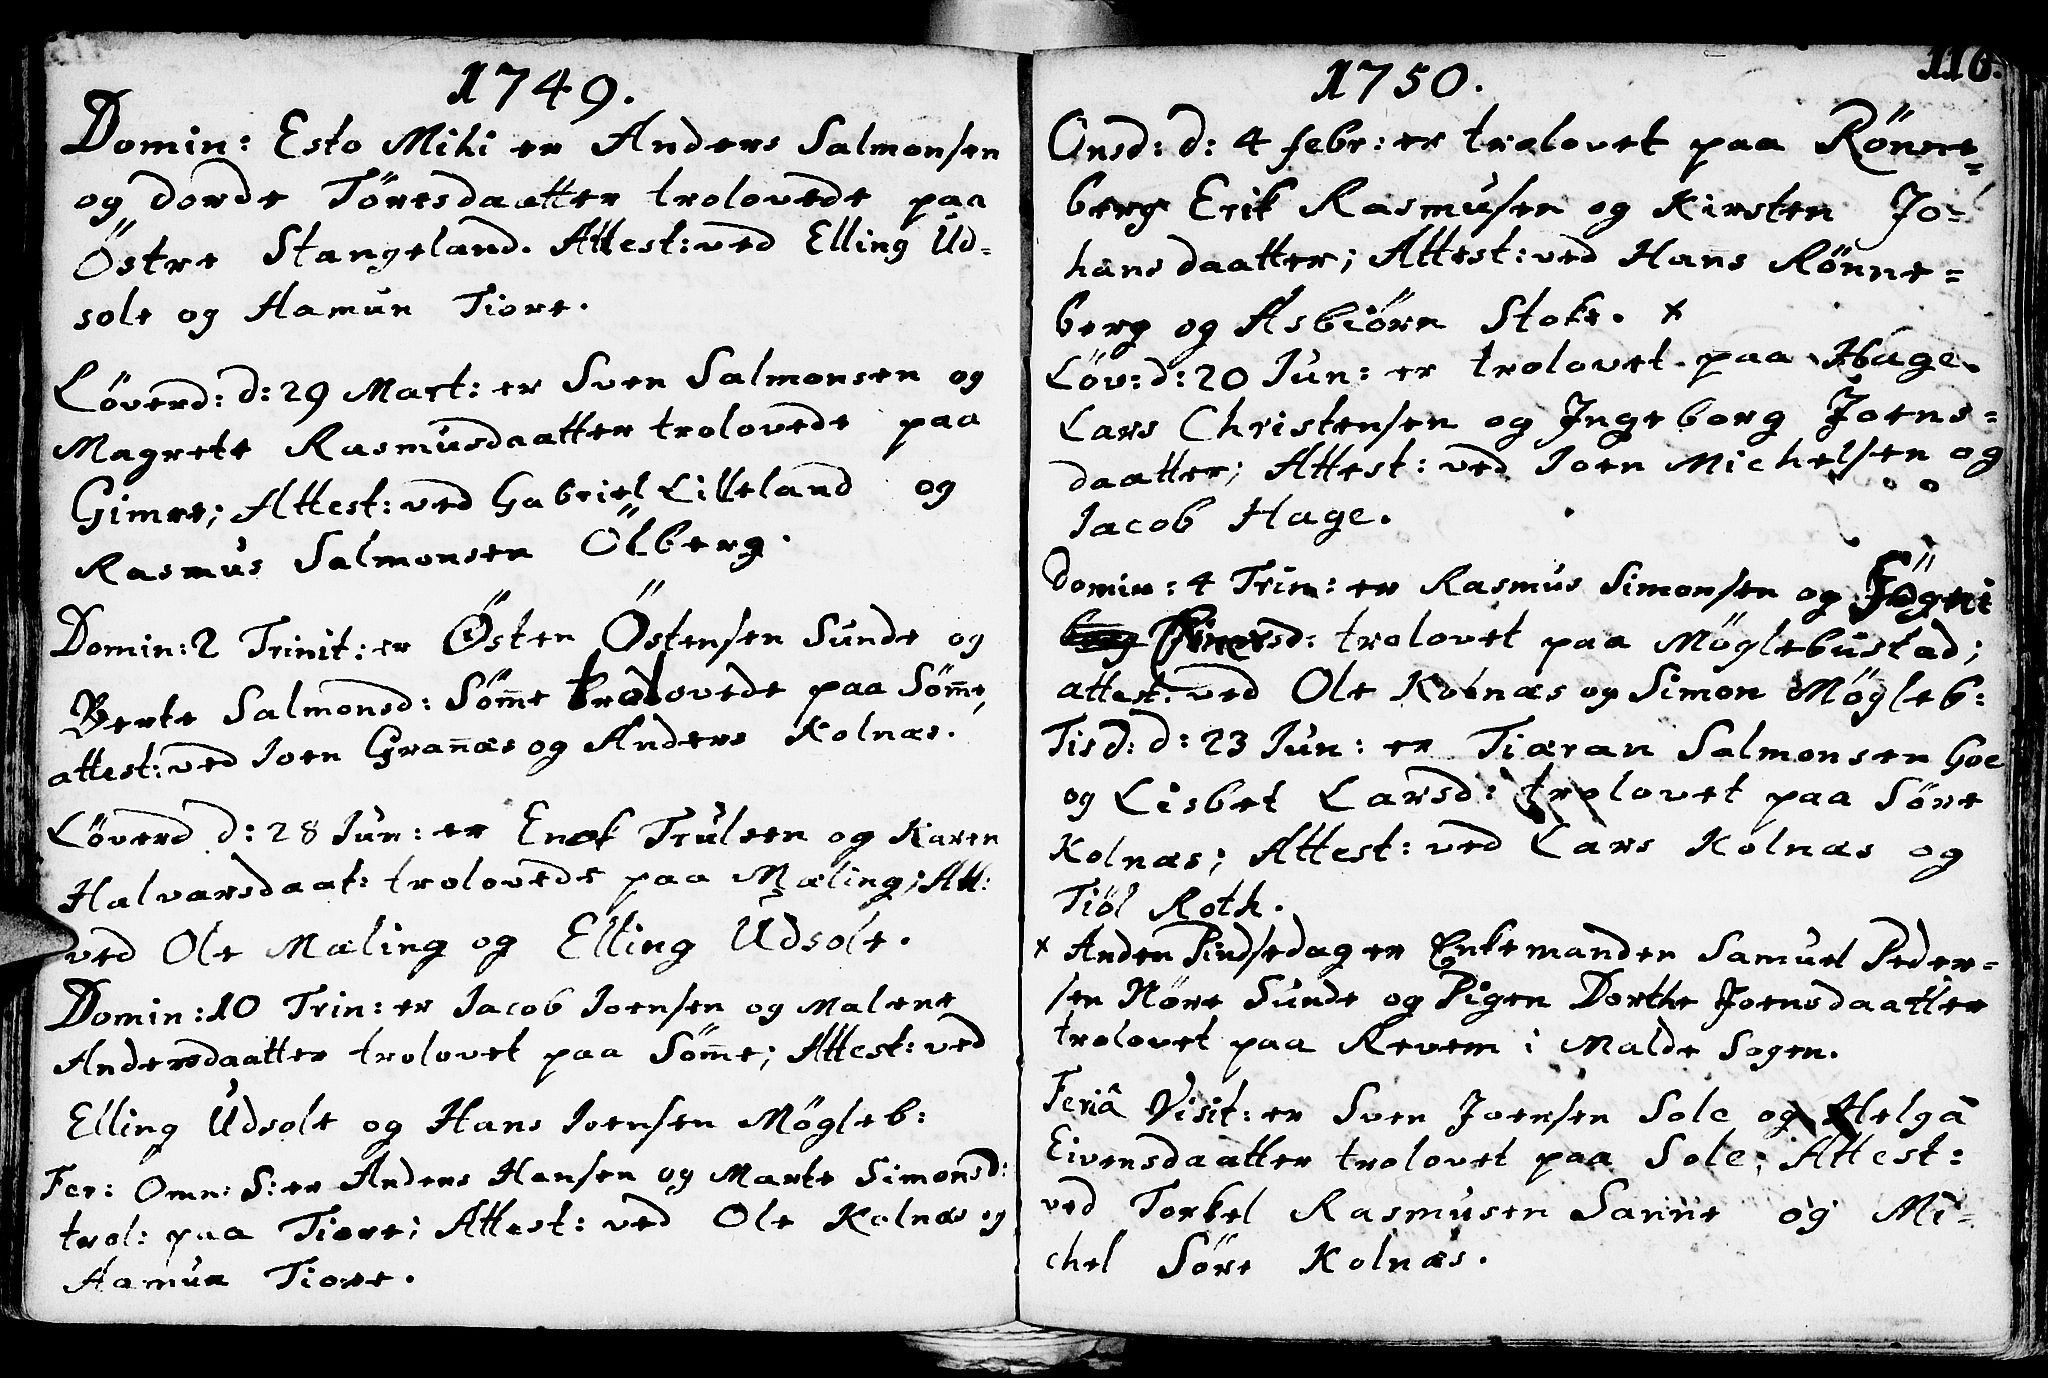 1749.
Domin: Esto Mihi er Anders Salmonsen
og dorde Töresdaatter trolovede paa
Östre Stangeland. Attest: ved Elling Ud-
sole og Hamun Tiore.
Löverd: d: 29 Mart: er Sven Salmonsen og
Magrete Rasmusdaatter trolovede paa
Gimre; Attest: ved Gabriel Lilleland og
Rasmus Salmonsen Ölberg.
Domin: 2 Trinit: er Östen Östensen Sunde og
Berte Salmonsd: Söm̅e trolovede paa Söm̅e,
attest: ved Joen Gran̅æs og Anders Kolnæs.
Löverd d: 28 Jun: er Enok Trulsen og Karen
Halvarsdaat: trolovede paa Mæling; Att:
ved Ole Mæling og Elling Udsole.
Domin: 10 Trin: er Jacob Joensen og Malene
Andersdaatter trolovet paa Söm̅e; Attest: ved
Elling Udsole og Hans Joensen Mögleb:
Fer: Omn: S: er Anders Hansen og Marte Simonsd:
trol: paa Tiore; Attest: ved Ole Kolnæs og
Hamun Tiore.
116.
1750.
Onsd: d: 4 febr: er trolovet paa Rönne-
berg Erik Rasmusen og Kirsten Jo-
hansdaatter; Attest: ved Hans Rönne-
berg og Asbiörn Stoke. x
Löv: d: 20 Jun: er trolovet paa Hage
Lars Christensen og Ingeborg Joens-
daatter; Attest: ved Joen Michelsen og
Jacob Hage.
Domin: 4 Trin: er Rasmus Simonsen og
trolovet paa Möglebustad;
attest: ved Ole Kolnæs og Simon Mögleb:
Tisd: d: 23 Jun: er Tiæran Salmonsen Goe
og Lisbet Larsd: trolovet paa Söre
Kolnæs; Attest: ved Lars Kolnæs og
Tiöl Roth.
x Anden Pindsedag er Enkemanden Samuel Peder-
sen Nöre Sunde og Pigen Dorthe Joensdaatter
trolovet paa Revem i Malde Sogen.
Feriâ Visit: er Sven Joensen Sole og Helga
Eivensdaatter trolovet paa Sole; Attest:
ved Torkel Rasmusen Sanne og Mi-
chel Söre Kolnæs.